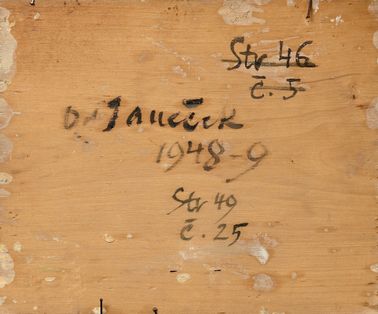 Str 46
č. 5
Or Janeček
1948-9
Str 49
č. 25